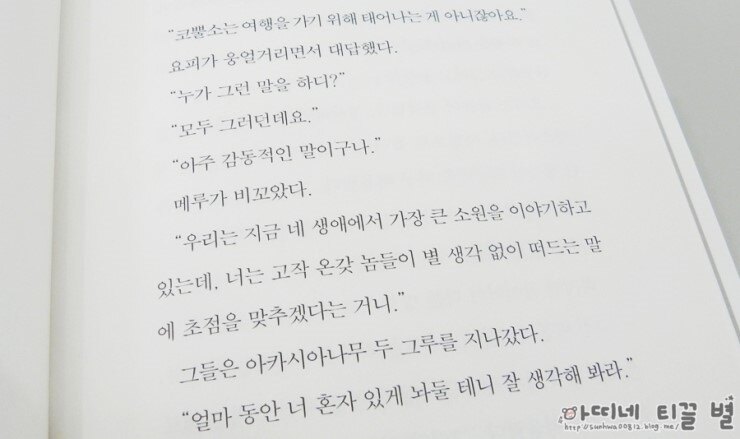 “코뿔소는 여행을 가기 위해 태어나는 게 아니잖아요.”
요피가 웅얼거리면서 대답했다.
“누가 그런 말을 하디?”
“모두 그러던데요.”
“아주 감동적인 말이구나.”
메루가 비꼬았다.
“우리는 지금 네 생애에서 가장 큰 소원을 이야기하고
있는데, 너는 고작 온갖 놈들이 별 생각 없이 떠드는 말
에 초점을 맞추겠다는 거니.”
그들은 아카시아나무 두 그루를 지나갔다.
“얼마 동안 너 혼자 있게 놔둘 테니 잘 생각해 봐라.”
아띠네 티끌 별
http://sunhwa00812.blog.me/